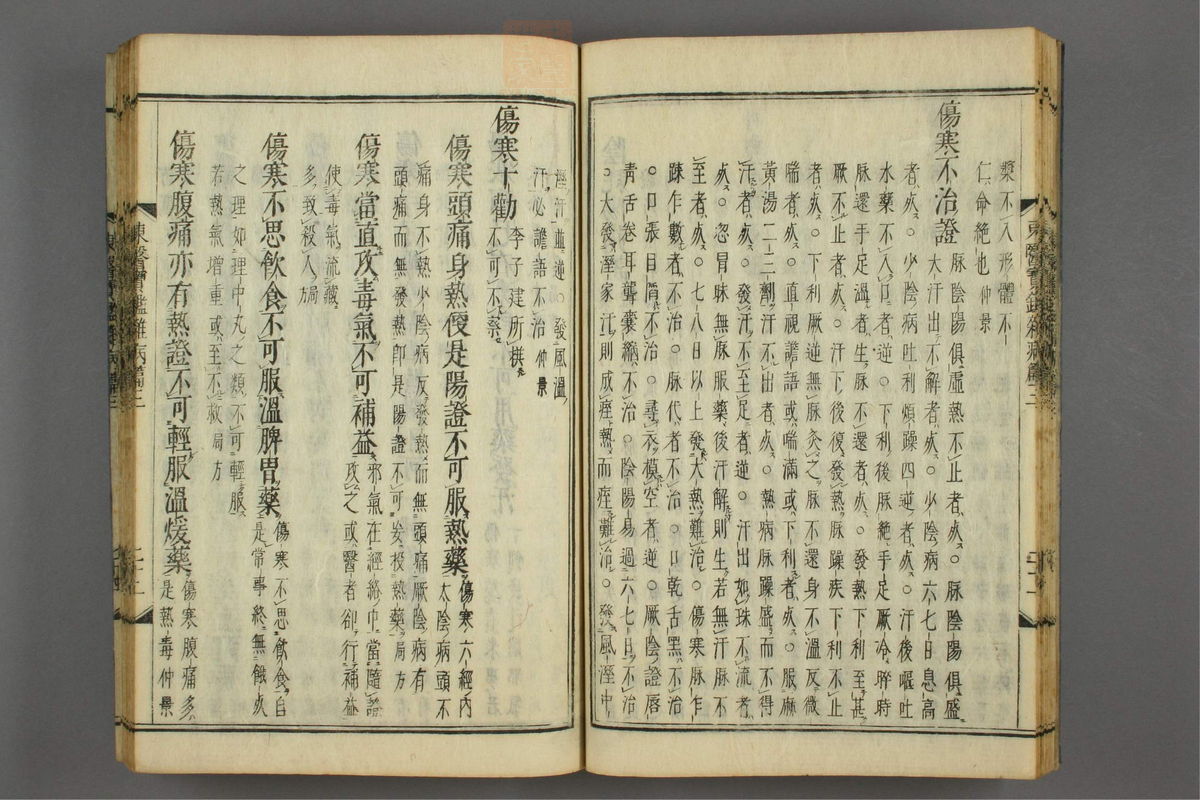 漿不入形體不
仁命絶也仲景
傷寒不治證
脉陰陽俱虛熱不止者死。脉陰陽俱盛
大汗出不解者死。少陰病六七日息高
者死。少陰病吐利煩躁四逆者死。汗後嘔吐
水藥不入口者逆。下利後脉絶手足厥冷晬時
脉還手足溫者生脉不還者死。發熱下利至甚
厥不止者死。汗不止下後復發熱脉躁疾下利不止
者死。下利厥逆無脉灸之脉不還身不溫反微
喘者死。直視譫語或喘滿或下利者死。服麻
黃湯二三劑汗不出者死。熱病脉躁盛而不得
汗者死。發汗不至足者逆。汗出如珠不流者
死。忽冒昧無脉服藥後汗解則生若無汗脉不
至者死。七八日以上發大熱難治。傷寒脉乍
踈乍數者不治。脉代者不治。口乾舌黑不治
。口張目陷不治。尋衣摸空者逆。厥陰證唇
靑舌卷耳聾囊縮不治。陰陽易過六七日不治
。大發溼家汗則成痓熱而痓難治。發風溼中
溼汗並逆。發風溫
汗必譫語不治仲景
傷寒十勸
李子建所撰
不可不察
傷寒頭痛身熱便是陽證不可服熱藥
傷寒六經內
太陰病頭不
痛身不熱少陰病反發熱而無頭痛厥陰病有
頭痛而無發熱即是陽證不可妄投熱藥局方
傷寒當直攻毒氣不可補益
邪氣在經絡中當隨證
攻之或醫者卻行補益
使毒氣流藏
多致殺人局
傷寒不思飮食不可服溫脾胃藥
傷寒不思飮食自
是常事終無餓死
之理如理中丸之類不可輕服
若熱氣增重或至不救局方
傷寒腹痛亦有熱證不可輕服溫煖藥
傷寒腹痛多
是熱毒仲景
東醫寶鑑雜病篇三